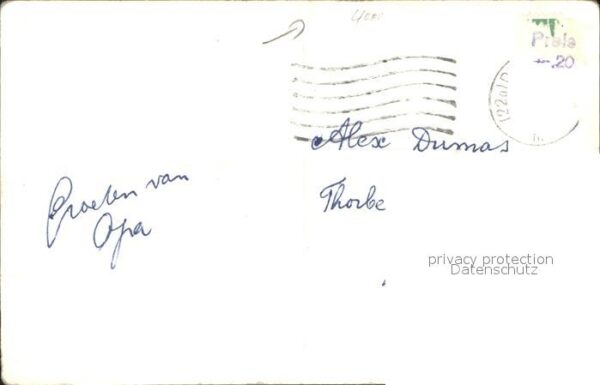 Preis
-.20
Alex Dumas
Thorbe
Groeten van
Opa
privacy protection
Datenschutz